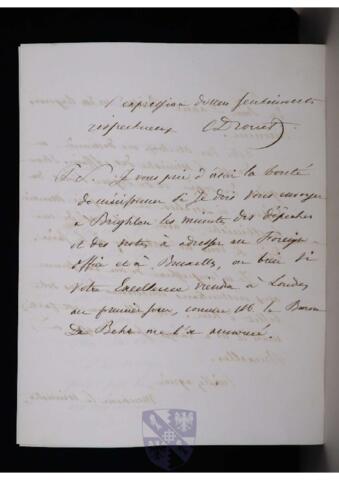 l'expression de mes sentiments
respectueux
CDrouet
P.S. Je vous prie d'avoir la bonté
de m'informer si je dois vous envoyer
à Brighton les minutes des dépêches
et des notes à adresser au Foreign
office et à Bruxelles, ou bien si
votre Excellence viendra à Londres
au premier jour, comme Mr. le Baron
de Beke me l'a annoncé.